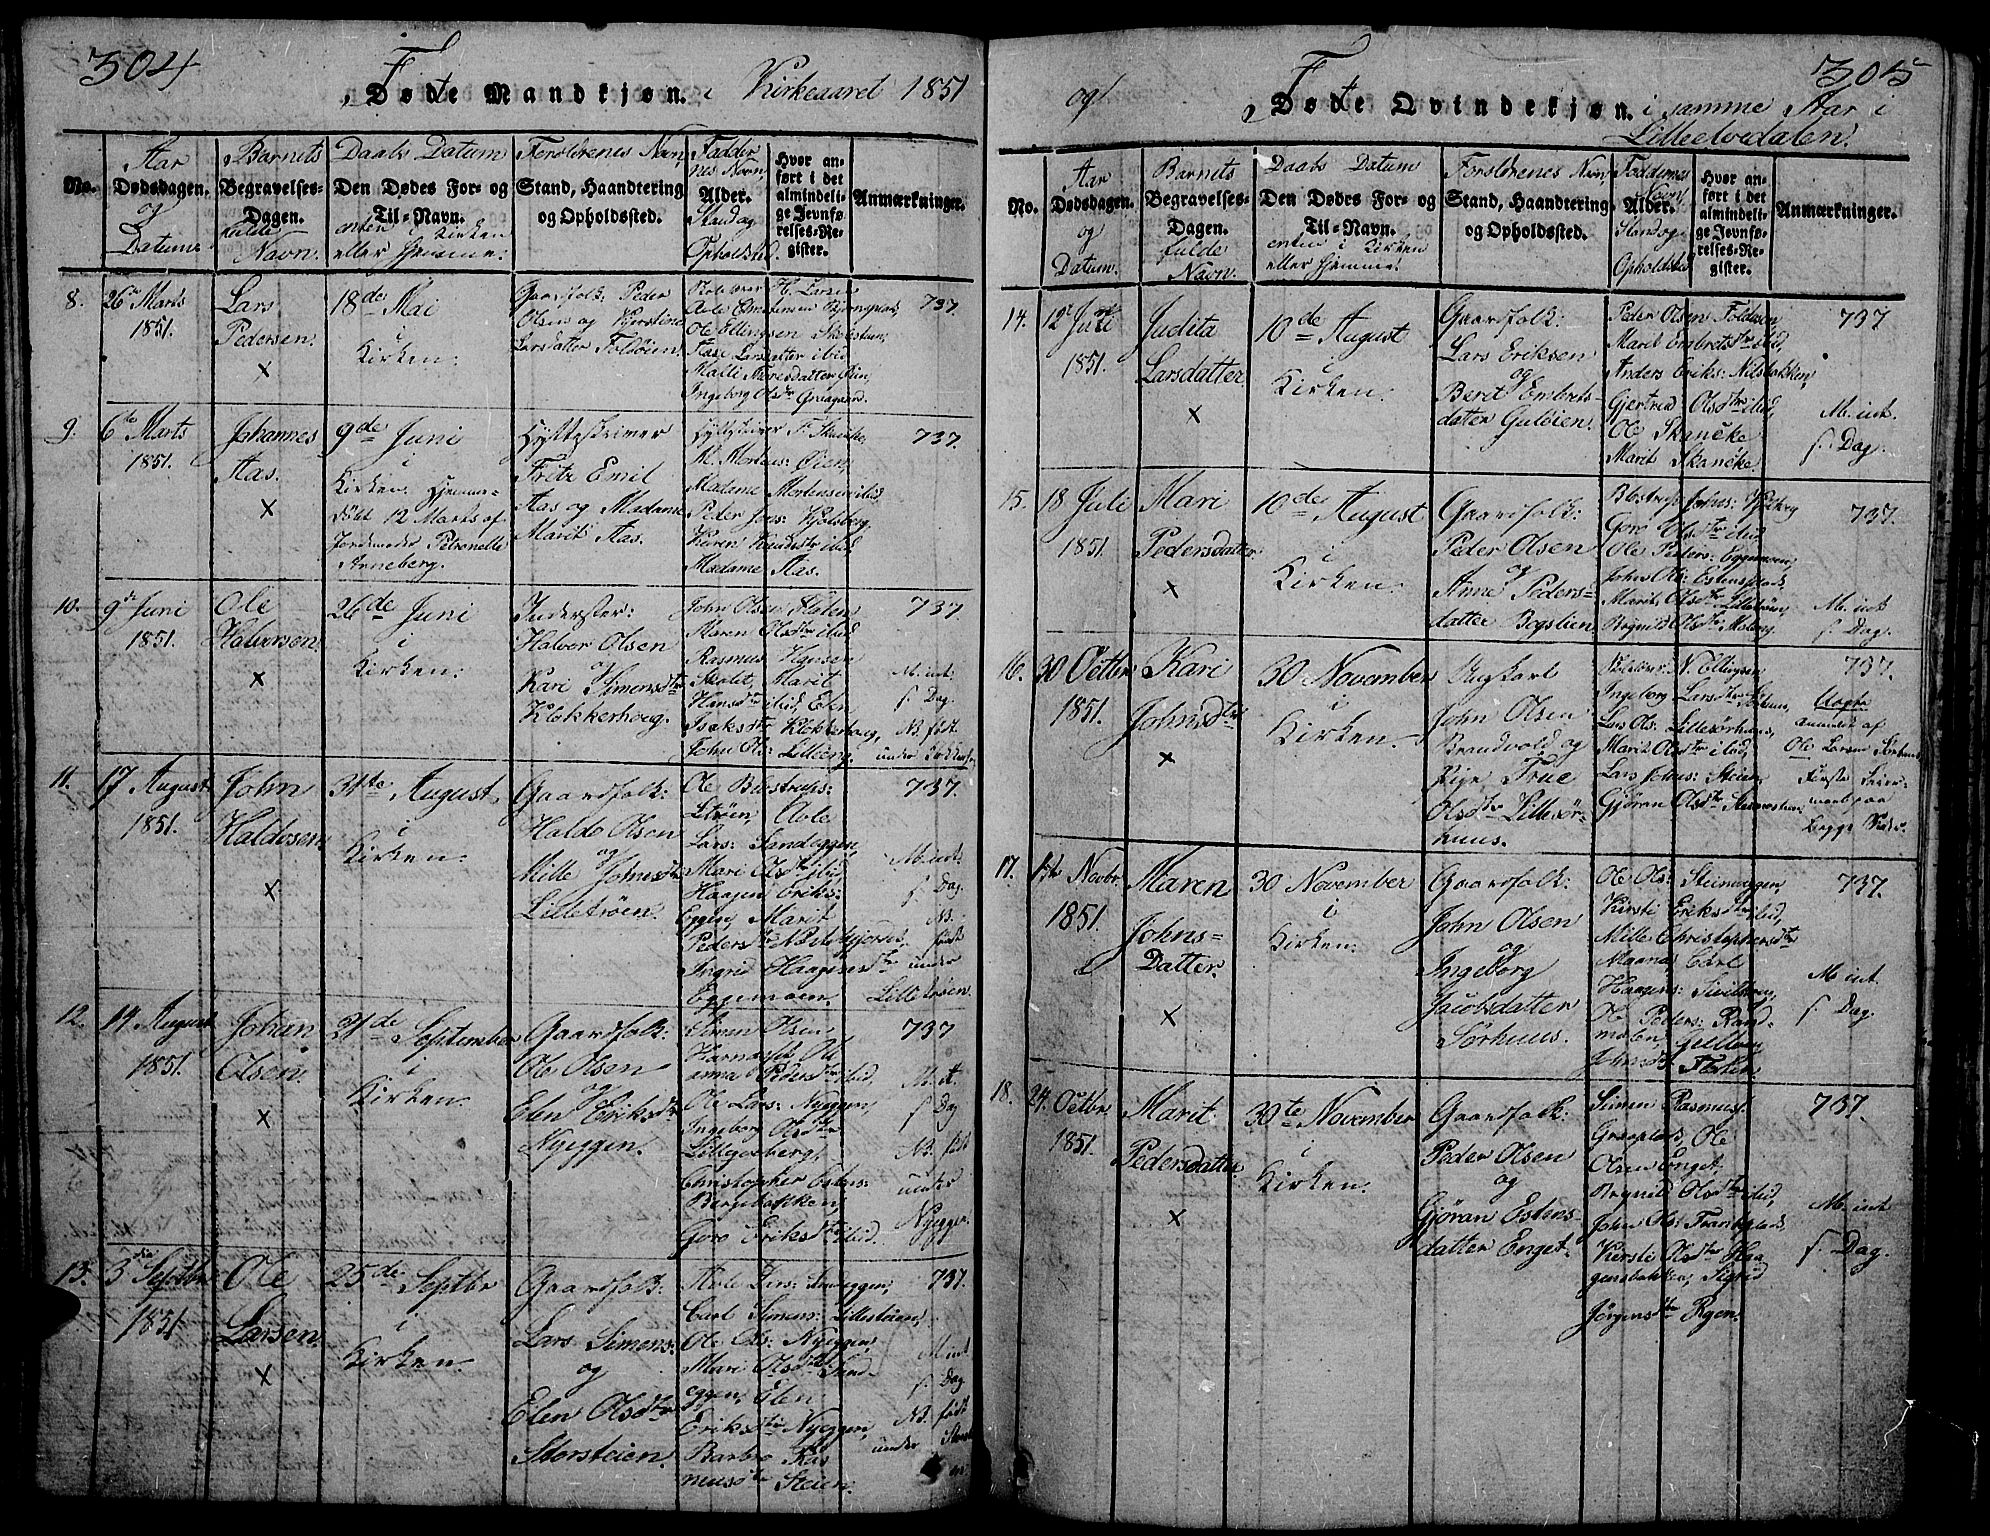 304
Døde Mandkjøn. i Kirkeaaret 1851
No.
Aar
Dødsdagen.
og
Datum
Barnets
Begravelses-
Dagen.
fulde
Navn.
Daabs Datum
Den Dødes For- og
Til-Navn.
enten i Kirken
eller hjemme.
Forældrenes Navn,
Stand, Haandtering
og Opholdssted.
Fadder
nes Navn
Alder.
Stand og
Opholdsted.
Hvor an-
ført i det
almindeli-
ge Jevnfø-
relses-Re-
gister.
Anmærkninger.
8.
26de Marts
1851.
Lars
Pedersen.
×
18de Mai
i
Kirken.
Gaardfolk: Peder
Olsen og Kjerstine
Larsdatter Foldøien.
Ole Ellingsen
Larsdatter ibid,
Ingeborg Olsdtr
737.
9.
6te Marts
1851.
Johannes
Aas.
×
9de Juni
i
Kirken. Hjemme-
døbt 12 Marts af
Jordemoder Petronelle
Arneberg.
Hyttestiimer
Fritz Emil
Aas og Madame
Marit Aas.
Madame Mortensen ibid,
Peder Jons: Kjelsberg,
Karen Knudsdtr ibid
Madame Aas.
737.
10.
9de Juni
1851.
Ole
Halvorsen.
×
26de Juni
i
Kirken.
Inderster:
Halvor Olsen
og
Kari Simensdtr
Klokkerhoug.
John Olsen
Maren Olsdtr ibid,
Rasmus Hansen
Marit
Hansdtr ibid, Elen
Isaksdtr Klokkerhoug,
John Ols: Lilleeng.
737.
M. int.
f. Dag.
NB. født
under
11.
17 August
1851.
John
Haldosen
×
31te August
i
Kirken.
Gaardfolk:
Haldo Olsen
og
Mille Johnsdtr
Lilletrøen.
Ole
Lars: Sandeggen,
Mari Olsdtr ibid,
Haagen Eriks:
Eggen, Marit
Ingrid Haagensdtr
Eggemoen.
737.
M. int.
f. Dag.
NB.
født
under
Lilletrøen.
12.
14 August
1851.
Johan
Olsen.
×
21de September
i
Kirken.
Gaardfolk:
Ole Olsen
og
Elen Eriksdtr
Nyeggen.
Simen Olsen
Pedersdtr ibid,
Ole Lars: Nyeggen,
Ingeborg Olsdtr
Christopher Estens:
Bergebakken,
Goro Eriksdtr ibid.
737
M. int.
f. Dag
NB. født
under
Nyeggen.
13.
3die Septbr
1851
Ole
Larsen.
×
25de Septbr
i
Kirken.
Gaardfolk:
Lars Simens:
og
Elen Olsdtr
Storsteien.
Carl Simens: Lillesteien,
Ole Ols: Nyeggen,
Mari Olsdtr Sand-
eggen, Elen
Eriksdtr Nyeggen,
Barbro Ras
musdtr Steien.
737.
M. int
f. Dag
NB. født
under
og
305
Døde Qvindekjøn. i samme Aar i
Lilleelvedalen.
No.
Aar
Dødsdagen.
og
Datum.
Barnets
Begravelses-
Dagen.
fulde
Navn.
Daabs Datum
Den Dødes For- og
Til-Navn.
enten i Kirken
eller hjemme.
Forældrenes Navn,
Stand, Haandtering
og Opholdssted.
Faddernes
Navn,
Alder.
Stand og
Opholdsted
Hvor an-
ført i det
almindeli-
ge Jevnfø-
relses-Re-
gister.
Anmærkninger.
14.
12te Juni
1851.
Judita
Larsdatter
×
10de August
i
Kirken.
Gaardfolk:
Lars Eriksen
og
Berit Embrets-
datter Guløien.
Peder Olsen Foldøien,
Marit Embretsdtr ibid,
Anders Eriks: Nilsbakken,
Gjertrud Olsdtr ibid,
Ole Skancke
Marit Skancke.
737
M. int.
f. Dag.
15.
18 Juli
1851.
Mari
Pedersdatter
×
10de August
i
Kirken.
Gaardfolk:
Peder Olsen
og
Anne Peders-
datter Bogslien.
Goro Olsdtr ibid
Ole Peders: Eggemoen,
Marit Olsdtr Lilletrøen,
737.
M. int
f. Dag.
16.
30 Octbr
1851.
Kari
Johnsdtr
×
30 November
i
Kirken.
Ungkarl
John Olsen
Brandvold og
Pige True
Olsdtr Lillesør-
huus.
Ingeborg Larsdtr
Lars Ols: Lillesørhuus,
Marit Olsdtr ibid,
Gjøran Olsdtr
737.
Uægte
anmeldt af
Ole Larsen Sørhuus
Første Leier-
maal paa
begge Sider.
17.
13de Novbr
1851.
Maren
Johns=
Datter.
×
30 November
i
Kirken.
Gaardfolk:
John Olsen
og
Ingeborg
Jacobsdatter
Sørhuus.
Ole Ols: Steineggen
Kirsti Eriksdtr ibid,
Mille Christophersdtr
Moanæs, Carl
Ole Peders: Rand-
moen,
737.
M. int
f. Dag.
18.
24. Octbr
1851.
Marit
Pedersdatter.
×
30te November
i
Kirken.
Gaardfolk:
Peder Olsen
og
Gjøran Estens-
datter Enget.
Simen Rasmus:
Ole
Olsen Enget,
Rognild Olsdtr ibid,
Kirsti Olsdtr Haa
gensbakken, Sigrid
Jørgensdtr Rgen.
737.
M. int
f. Dag.